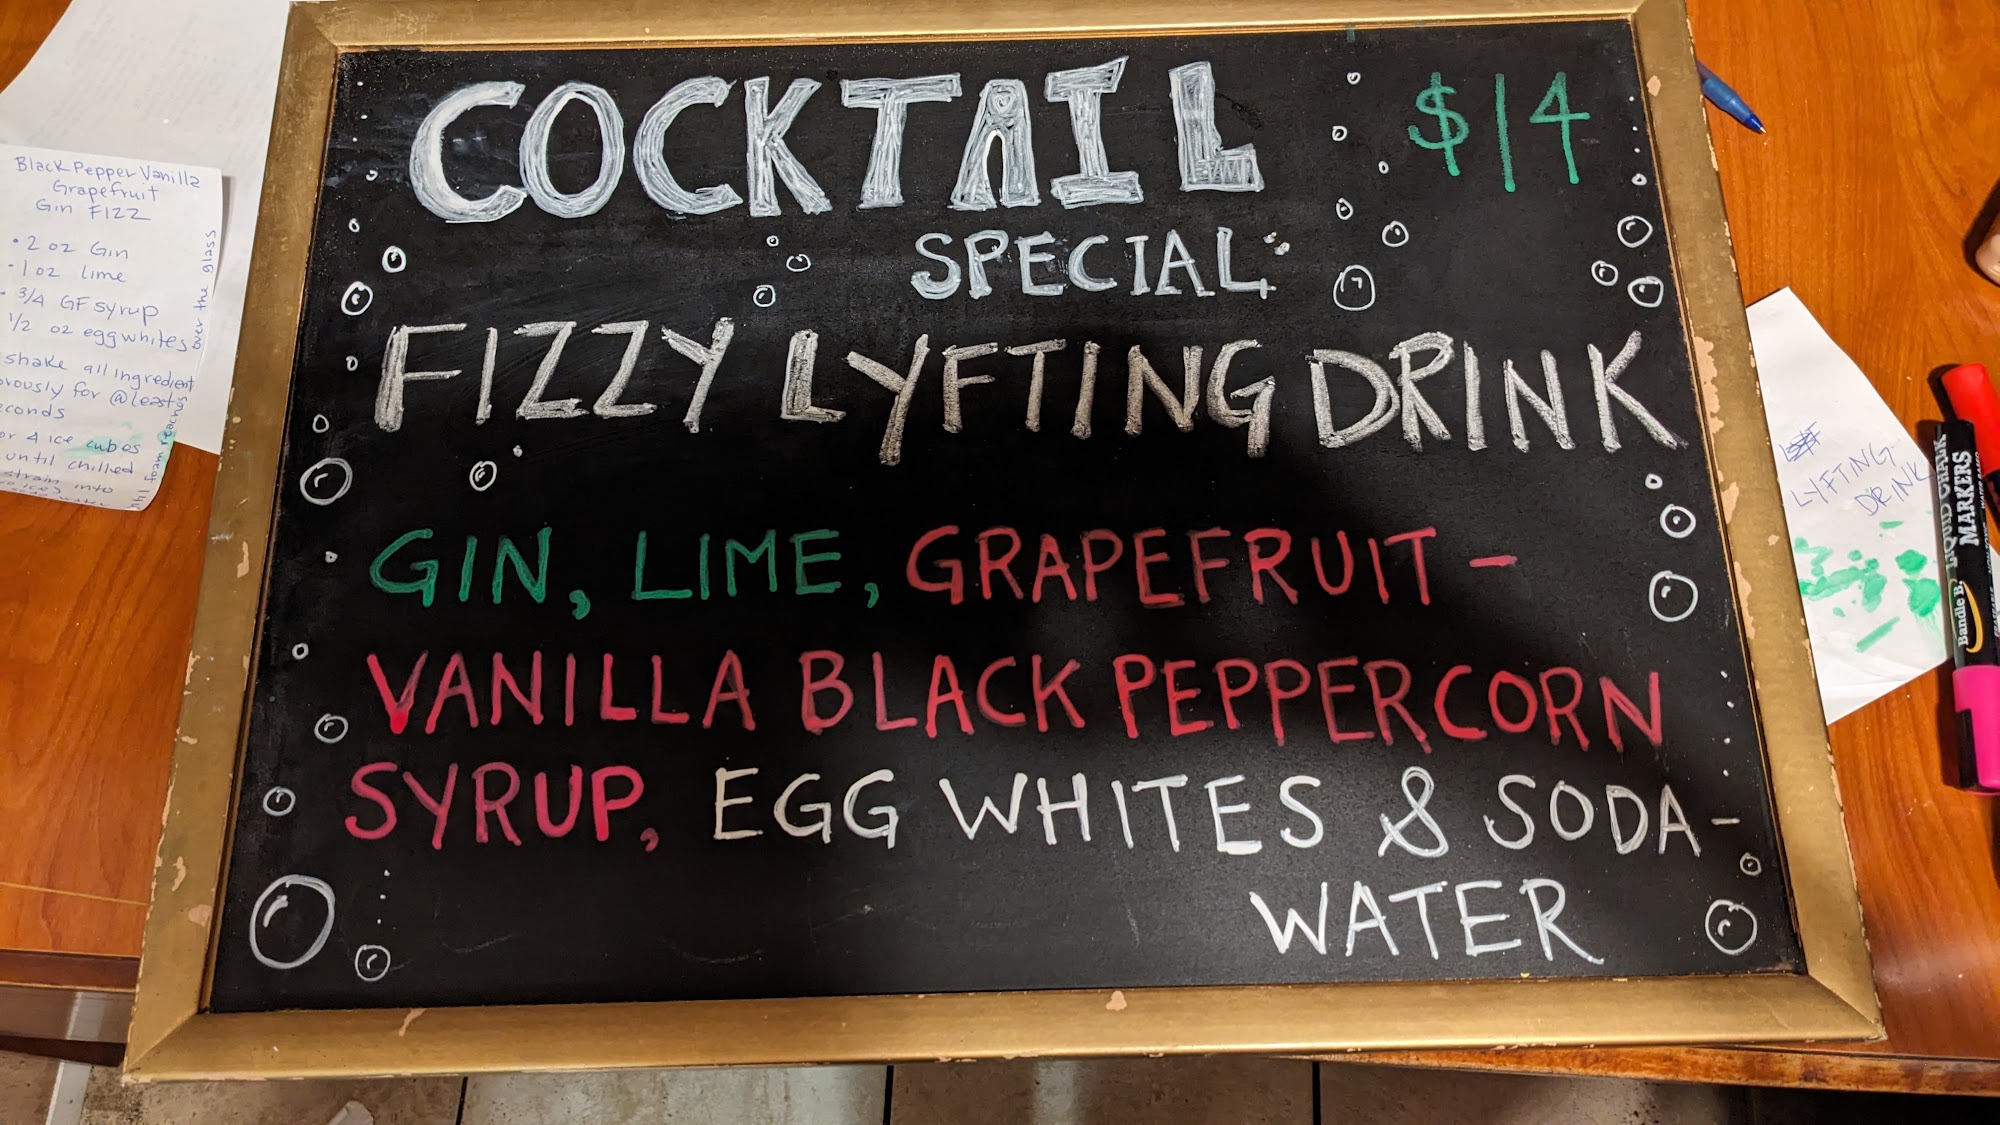 COCKTAIL
$14
SPECIAL
FIZZY LYFTING DRINK
GIN, LIME, GRAPEFRUIT-
VANILLA BLACK PEPPERCORN
SYRUP, EGG WHITES & SODA-
WATER
Black Pepper Vanilla
Grapefruit
Gin FIZZ
• 2 oz Gin
• 1 oz lime
• 3/4 GF syrup
1/2 oz eggwhites
shake all ingredient
orously for @least
econds
or 4 ice cubes
until chilled
strain into
until foam reaches over the glass
LYFTING
DRINK
LIQUID CHALK
MARKERS
Bandle B.